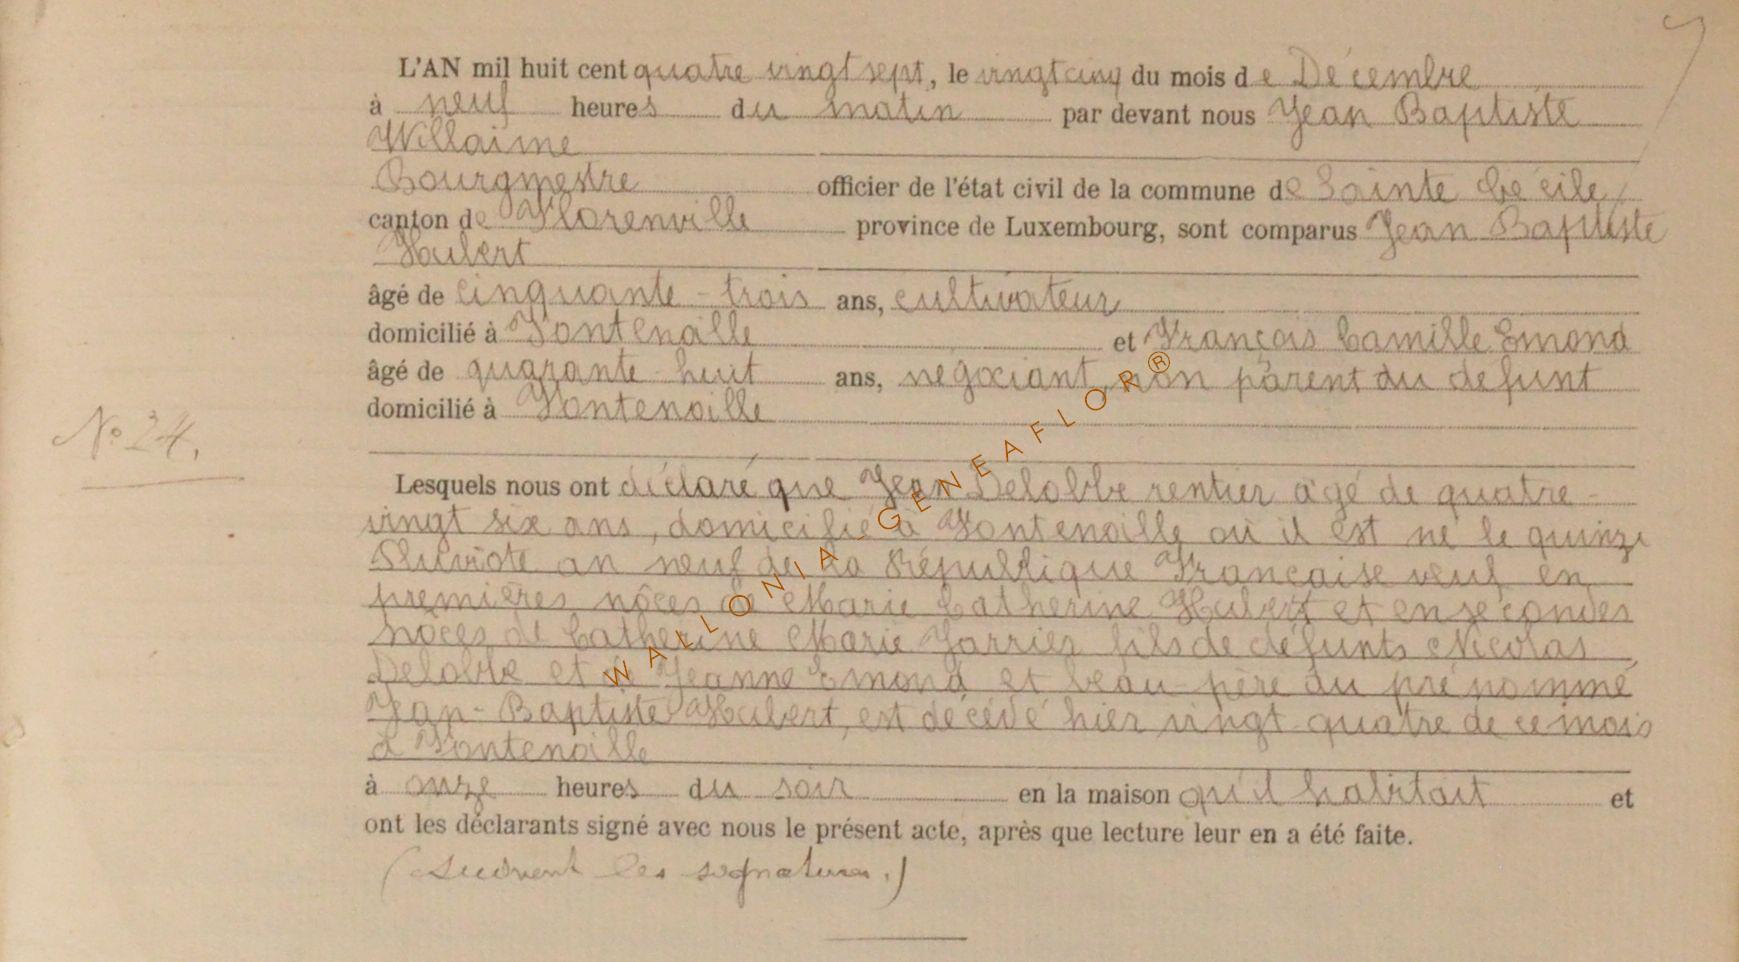 L'AN mil huit cent quatre vingt sept, le vingt cinq du mois de Décembre
à neuf heures du matin par devant nous Jean Baptiste
Willaime
Bourgmestre officier de l'état civil de la commune de Sainte Cécile,
canton de Florenville province de Luxembourg, sont comparus Jean Baptiste
Hubert
âgé de cinquante-trois ans, cultivateur
domicilié à Fontenoille et François Camille Emond
âgé de quarante huit ans, négociant, non parent du défunt
domicilié à Fontenoille
No 24.
Lesquels nous ont déclaré que Jean Delobbe rentier âgé de quatre-
vingt six ans, domicilié à Fontenoille où il est né le quinze
Pluviôte an neuf de la République Française veuf en
premières nôces de Marie Catherine Hubert et en secondes
nôces de Catherine Marie Jarrier fils de défunts Nicolas
Delobbe et de Jeanne Emond et beau-père du prénommé
Jean-Baptiste Hubert, est décédé hier vingt-quatre de ce mois
à Fontenoille
à onze heures du soir en la maison qu'il habitait et
ont les déclarants signé avec nous le présent acte, après que lecture leur en a été faite.
(Suivent les signatures.)
WALLONIA-GENEAFLOR®